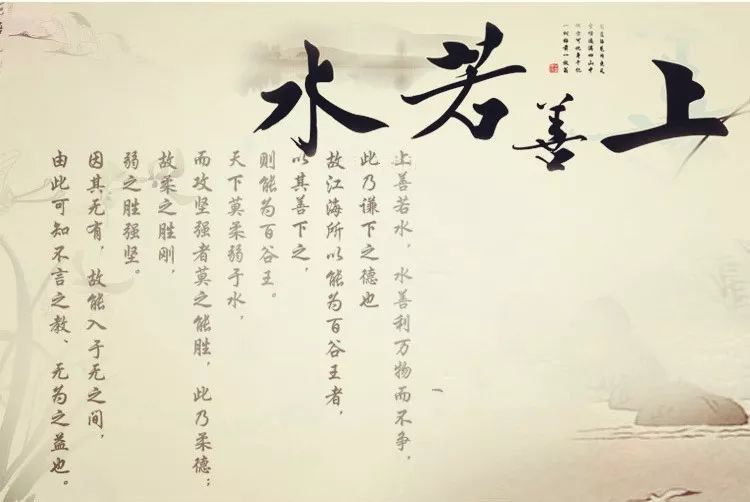 上善若水
上善若水，水善利万物而不争，
此乃谦下之德也
故江海所以能为百谷王者，
以其善下之，
则能为百谷王。
天下莫柔弱于水，
而攻坚强者莫之能胜，此乃柔德；
故柔之胜刚，
弱之胜强坚。
因其无有，故能入于无之间，
由此可知不言之教、无为之益也。